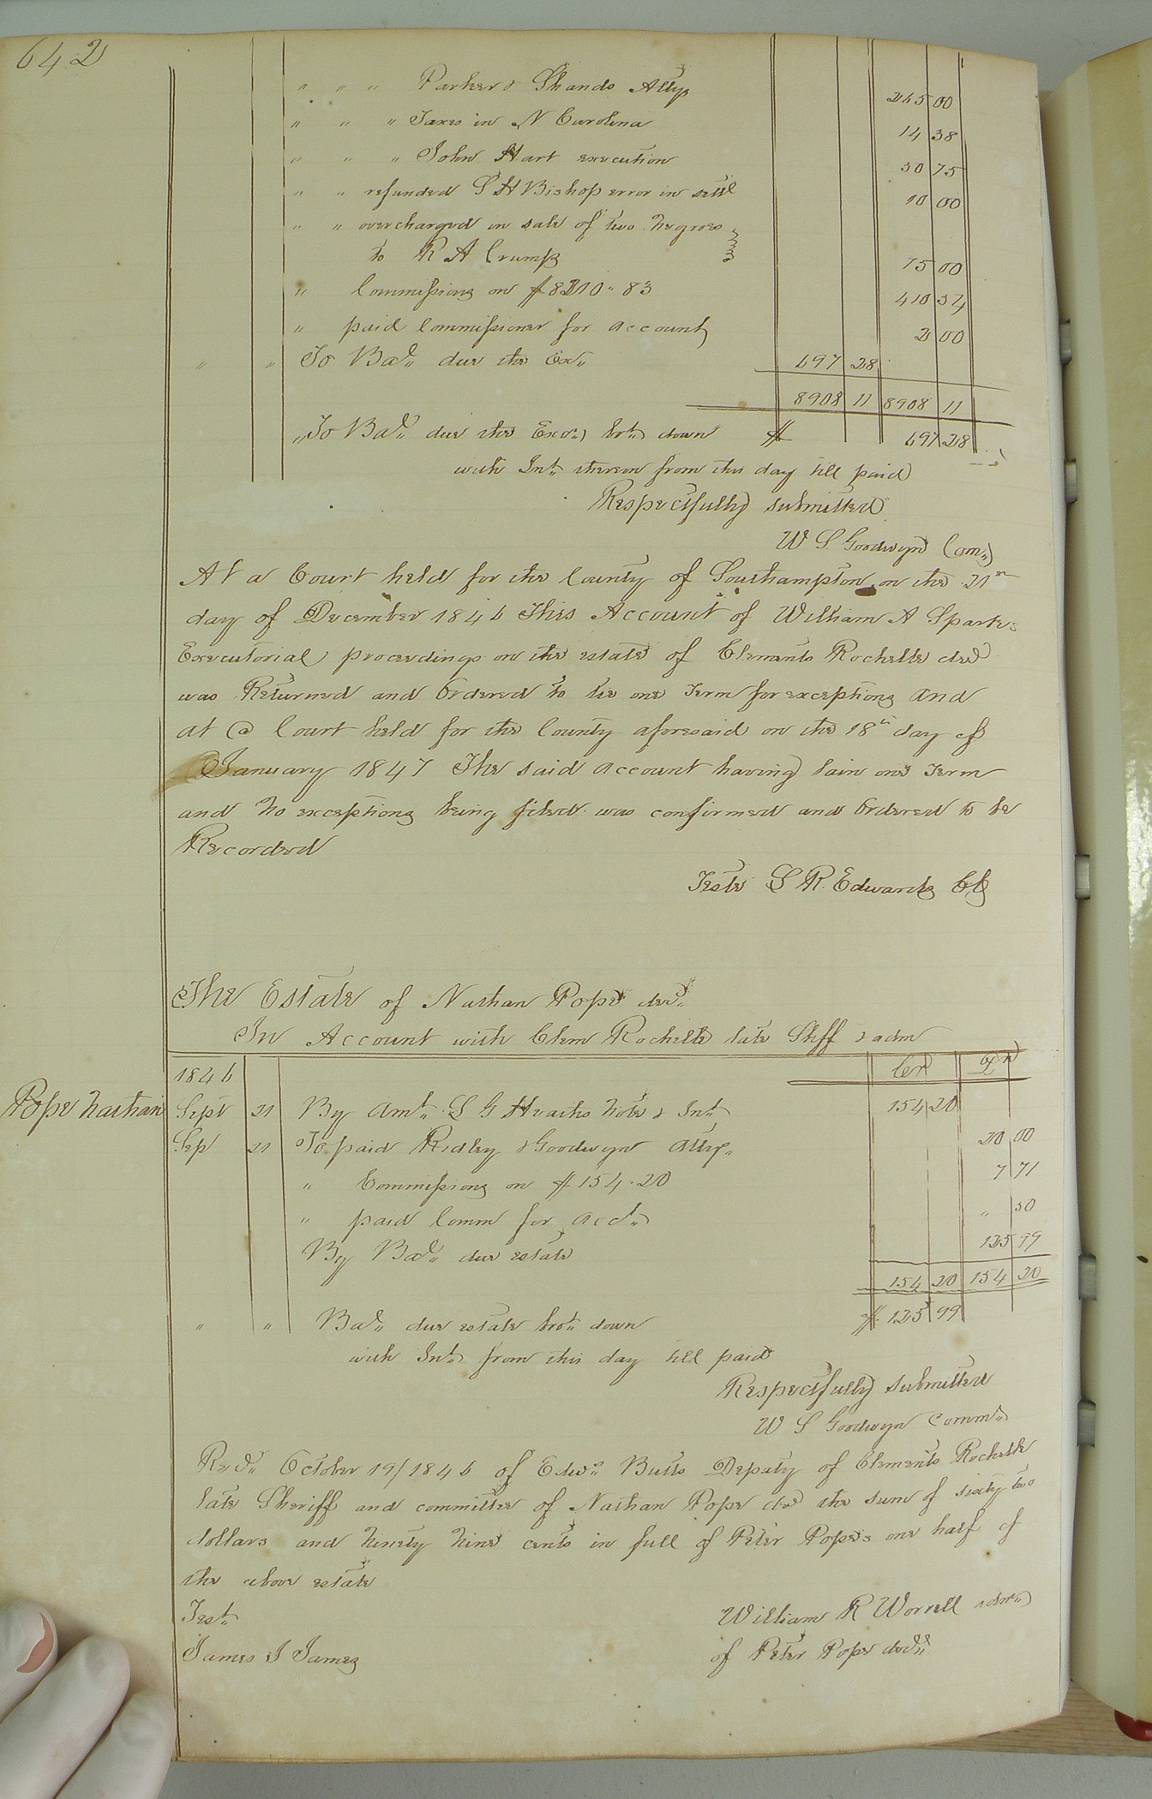 642
" " " Parker & Shands Attys 245 00
" " " Taxes in N Carolina 14 38
" " " John Hart execution 50 75
" " refunded S H Bishop error in settl 10 00
" " overcharged in sale of two Negroes
to R A Crump 75 00
" Commissions on $8210"83 410 54
" paid Commissioner for account 2 00
" " To Bal" due the Exr" 697 28
8908 11 8908 11
" To Bal" due the Exor brt" down $ 697 28
with Int" thereon from this day till paid
Respectfully submitted
W S Goodwyn Com"
At a Court held for the County of Southampton on the 21st
day of December 1846 This Account of William A Sparks
Executorial proceedings on the estate of Clements Rochelle decd
was Returned and Ordered to lie one Term for exceptions and
at a Court held for the County aforesaid on the 18th day of
January 1847 The said account having lain one Term
and No exceptions being filed was confirmed and Ordered to be
Recorded
Teste L R Edwards Clk
The Estate of Nathan Pope decd"
In Account with Clem Rochelle late Shff & adm
1846 Cr Dr
Pope Nathan
Sept 21 By Amt" S G Heaths Note & Int" 154 20
Sep 21 To paid Ridley & Goodwyn Attys" 20 00
" Commissions on $154.20 7 71
" paid Comm for acct" " 50
By Bal" due estate 125 99
154 20 154 20
" " Bal" due estate brot" down $ 125 99
with Int" from this day till paid
Respectfully submitted
W S Goodwyn Comm"
Recd" October 19/1846 of Edwd Butts Deputy of Clements Rochelle
late Sheriff and committee of Nathan Pope decd the sum of sixty two
dollars and Ninety Nine cents in full of Peter Popes one half of
the above estate
Test"
William R Worrell admr"
James J James
of Peter Pope decd"